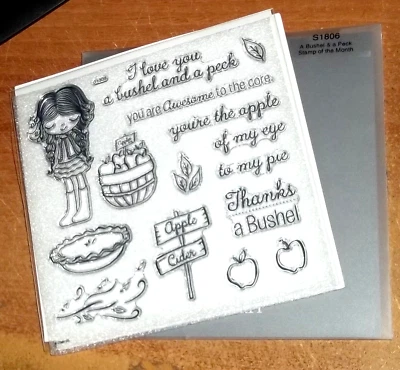 S1806
A Bushel & a Peck
Stamp of the Month
I love you
a bushel and a peck
you are Awesome to the core.
you're the apple
of my eye
to my pie
Thanks
a Bushel
Apple
Cider